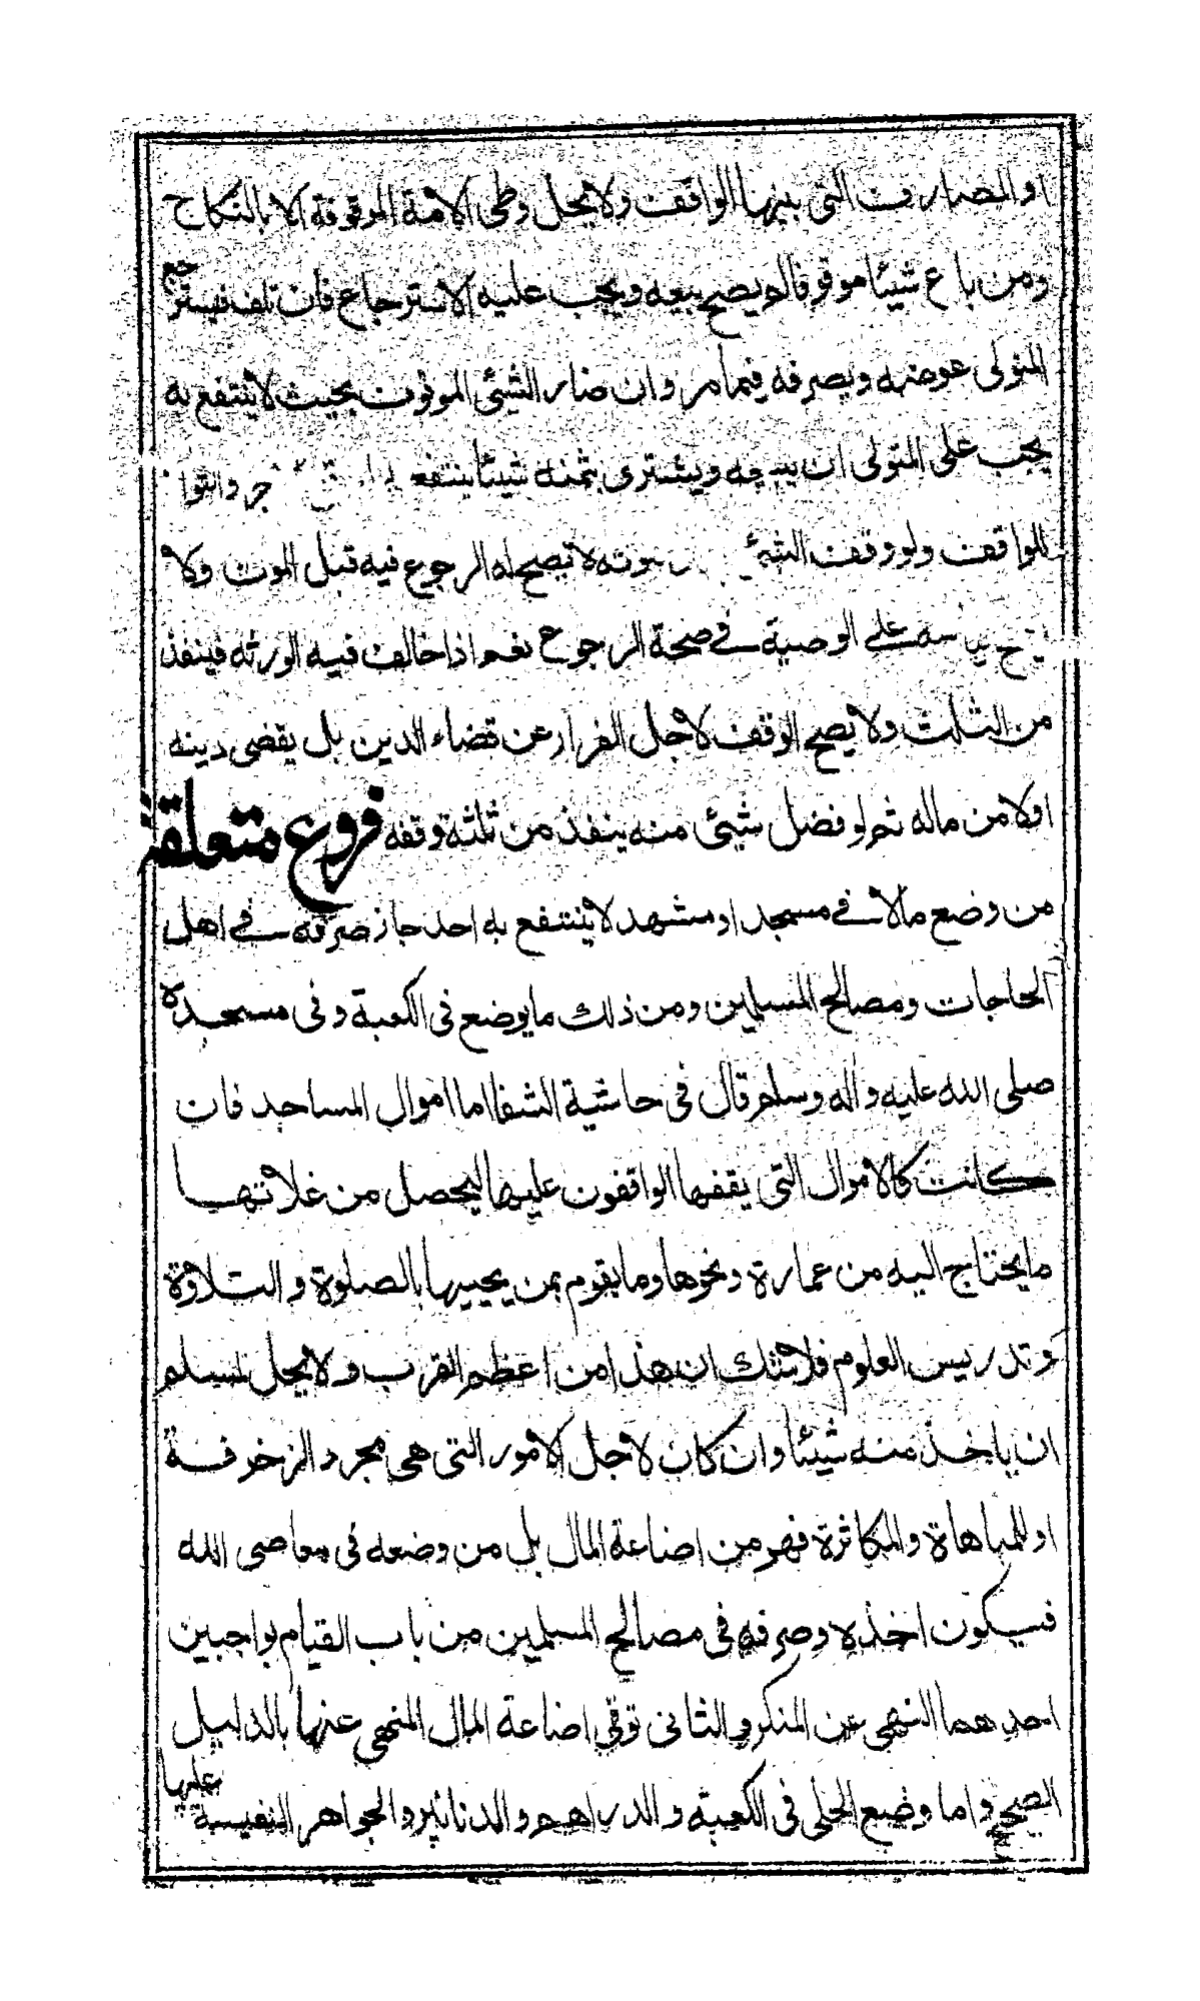 او المصارف التي بينها الواقف ولا يحل وطى الامة الموقوفة الا بالنكاح
ومن باع شيئا موقوفا لم يصح بيعه ويجب عليه الاسترجاع فان تلف فيسترجع
المتولى عوضه ويصرفه فيما مر وان صار الشيئ الموقوف بحيث لا ينتفع به
يجب على المتولى ان يبيعه ويشترى بثمنه شيئا ينتفع
للواقف ولو وقف لا يصح له الرجوع فيه قبل الموت ولا
على الوصية في صحة الرجوع نعم اذا خالف فيه الورثه فينفذ
من الثلث ولا يصح الوقف لاجل الفرار عن قضاء الدين بل يقضى دينه
اولا من ماله ثم لو فضل شيئ منه ينفذ من ثلثه وقفه فروع متعلقة
من وضع مالا في مسجد او مشهد لا ينتفع به احد جاز صرفه في اهل
الحاجات ومصالح المسلمين ومن ذلك ما يوضع في الكعبة وفي مسجده
صلى الله عليه واله وسلم قال في حاشية الشفا اما اموال المساجد فان
كانت كالاموال التي يقفها الواقفون عليها ليحصل من غلاتها
ما يحتاج اليه من عمارة ونحوها وما يقوم بمن يحييها بالصلوة والتلاوة
وتدريس العلوم فلا شك ان هذا من اعظم القرب ولا يحل لمسلم
ان ياخذ منه شيئا وان كان لاجل الامور التي هي مجرد الزخرفة
او للمباهاة والمكاثرة فهو من اضاعة المال بل من وضعه في معاصى الله
فيكون اخذه وصرفه في مصالح المسلمين من باب القيام بواجبين
احدهما النهي عن المنكر والثاني توقي اضاعة المال المنهي عنها بالدليل
الصحيح واما وضع الحلى في الكعبة والدراهم والدنانير والجواهر النفيسة عليها